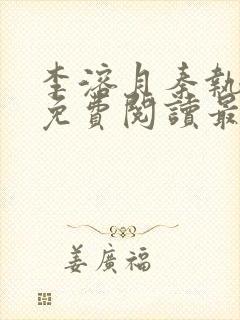 李溶月秦執
免費閱讀最
姜廣福